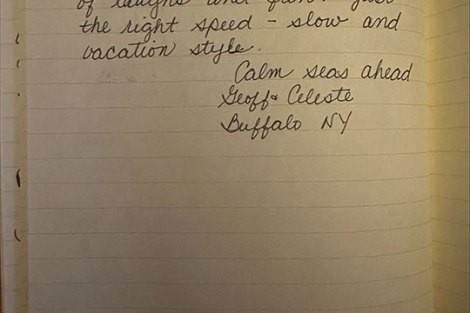 of laughs and fun. Just
the right speed - slow and
vacation style.
Calm seas ahead
Geoff & Celeste
Buffalo NY